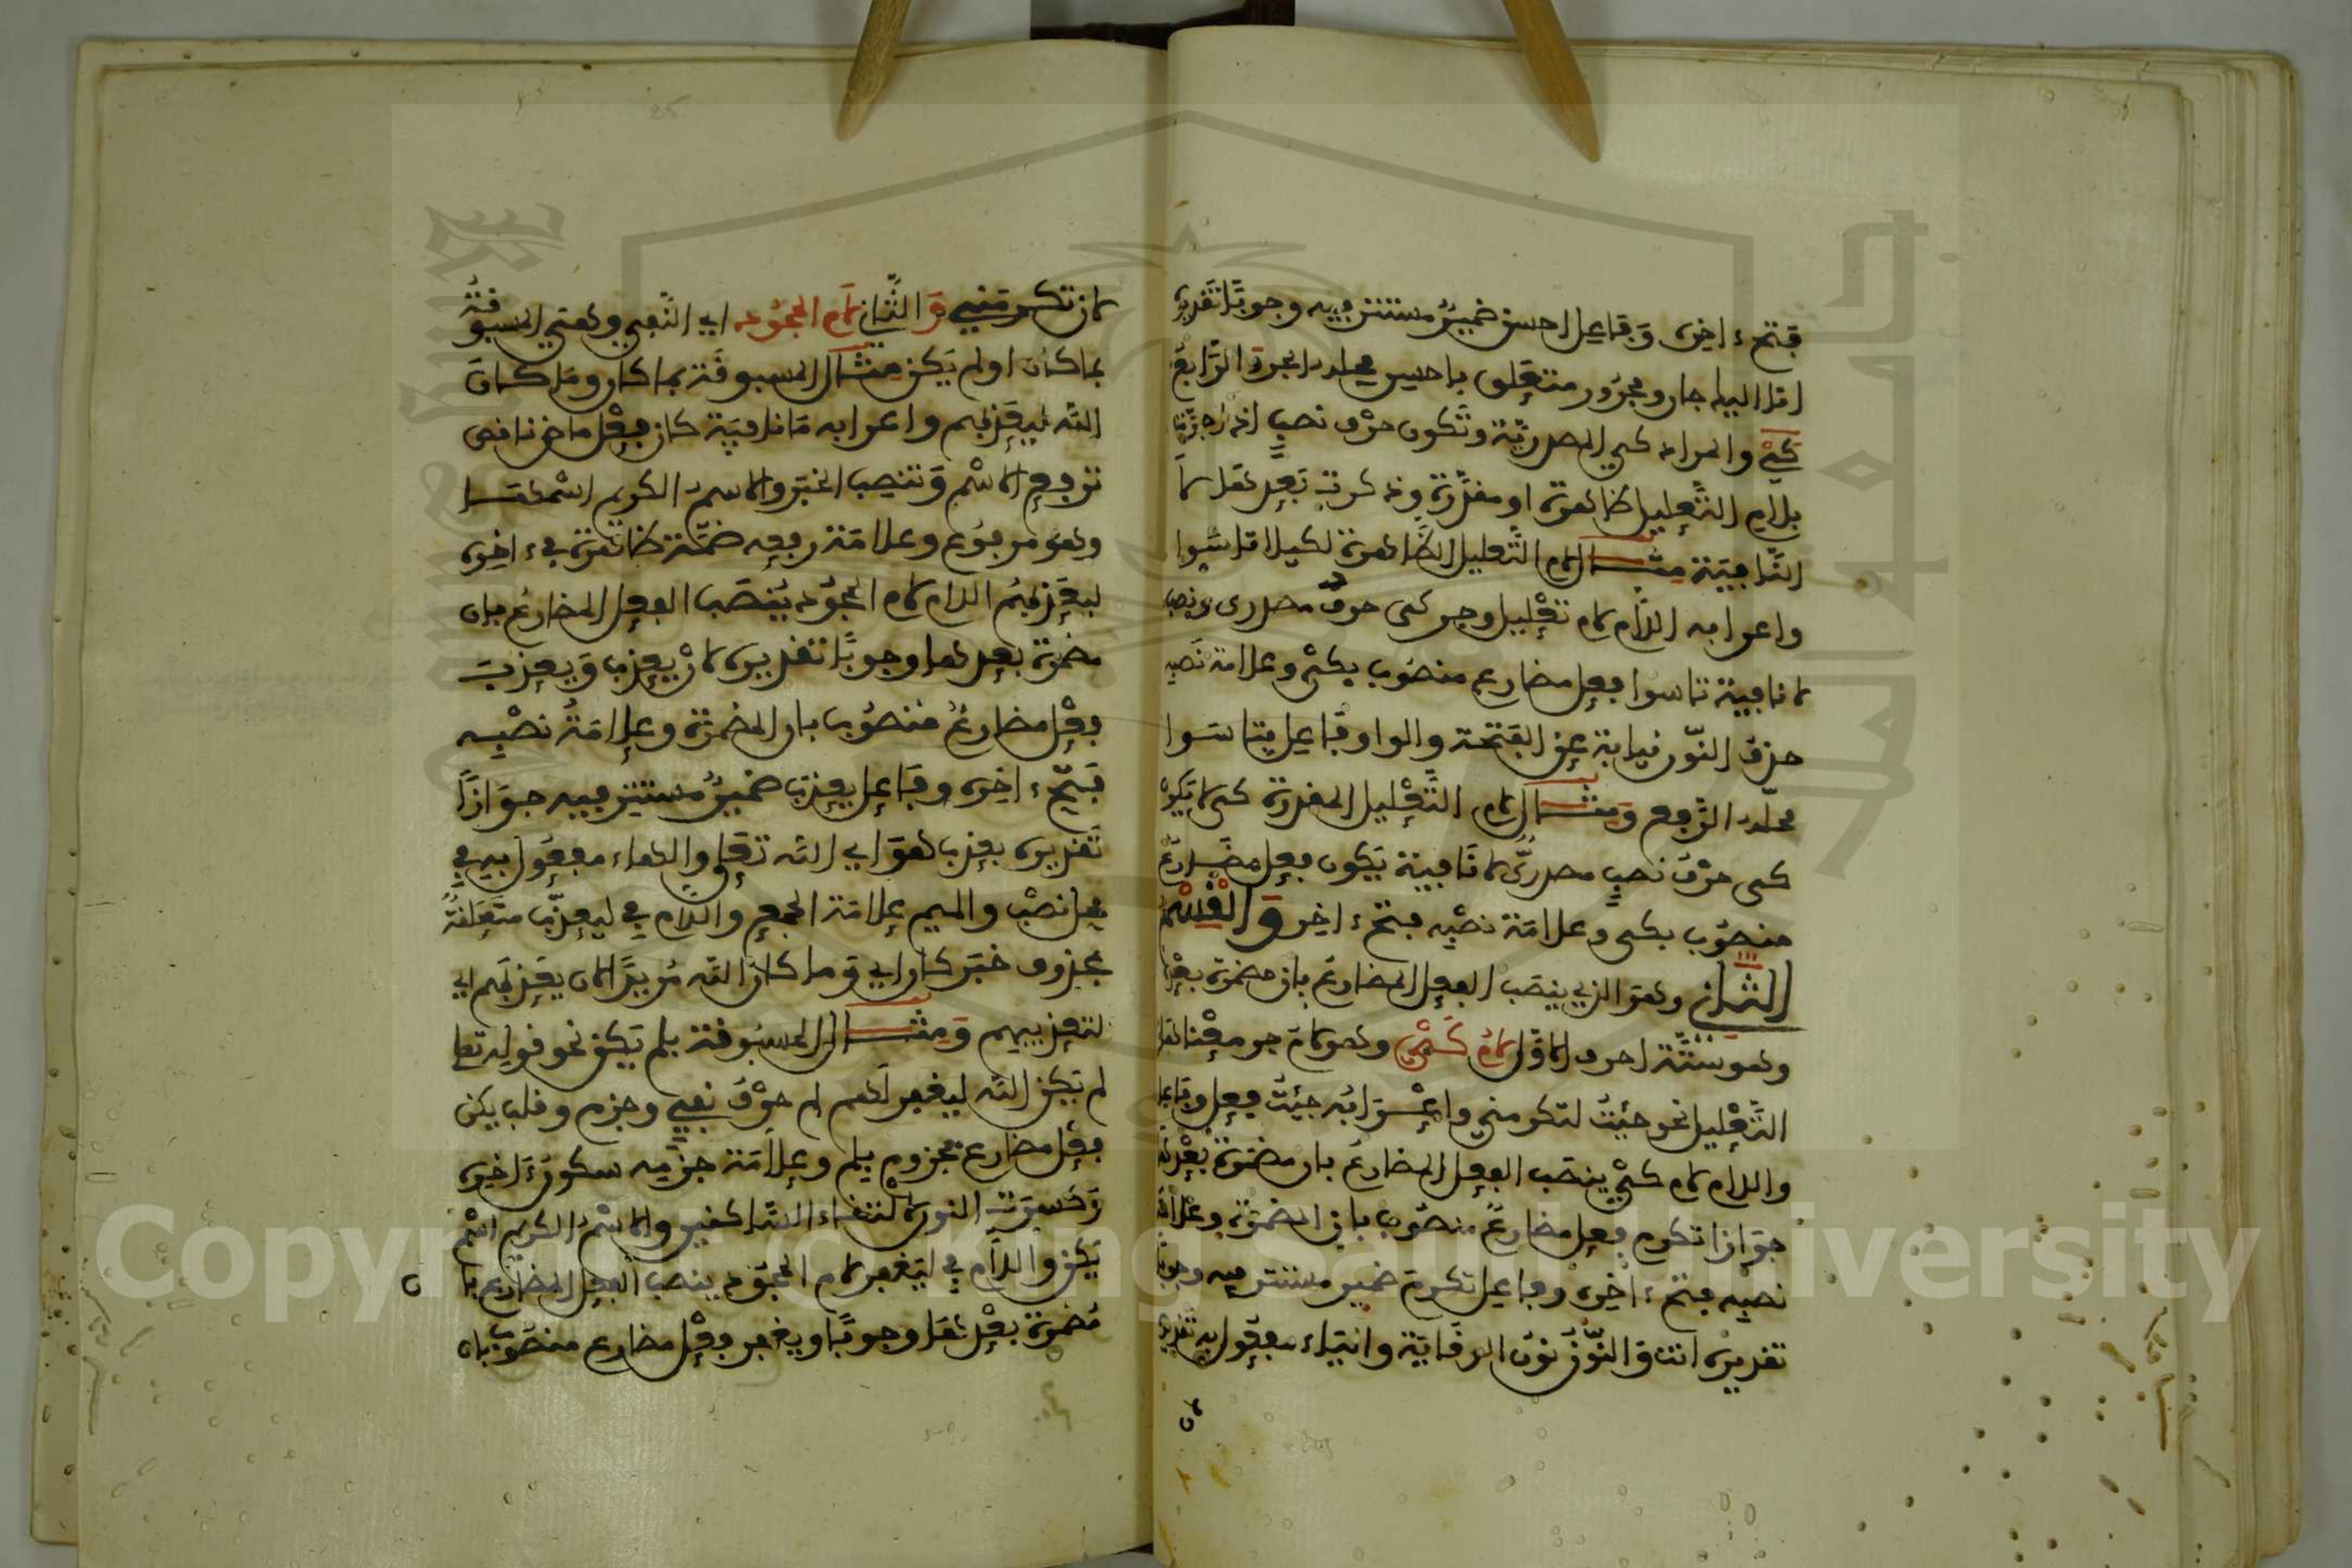 فتحة ءاخره وفاعل احسن ضمير مستتر فيه وجوبا تقديره
انا اليك جار ومجرور متعلق باحسن محله الجر والرابع
كي والمراد كي المصدرية وتكون حرف نصب اذا اجرت
بلام التعليل ظاهرة او مقدرة وذكرت بعدها لا
النافية مثال لام التعليل الظاهرة لكيلا تاسوا
واعرابه اللام لام تعليل وجر كي حرف مصدري ونصب
لا نافية تاسوا فعل مضارع منصوب بكي وعلامة نصبه
حذف النون نيابة عن الفتحة والواو فاعل بتاسوا
محله الرفع ومثال لام التعليل المقدرة كي لا يكون
كي حرف نصب مصدري لا نافية يكون فعل مضارع
منصوب بكي وعلامة نصبه فتح ءاخره والقسم
الثاني وهو الذي ينصب الفعل المضارع بان مضمرة بعدها
وهو ستة احرف الاول لام كي وهو لام جر معناها
التعليل نحو جئت لتكرمني واعرابه جئت فعل وفاعل
واللام لام كي ينصب الفعل المضارع بان مضمرة بعدها
جوازا تكرم فعل مضارع منصوب بان المضمرة وعلامة
نصبه فتح ءاخره وفاعل تكرم ضمير مستتر فيه وجوبا
تقديره انت والنون نون الوقاية والياء مفعول به تقديره
لان تكرمني والثاني لام الجحود اي النفي وهي المسبوقة
بما كان او لم يكن مثال المسبوقة بما كان وما كان
الله ليعذبهم واعرابه ما نافية كان فعل ماض ناقص
ترفع الاسم وتنصب الخبر والاسم الكريم اسمها
وهو مرفوع وعلامة رفعه ضمة ظاهرة في ءاخره
ليعذبهم اللام لام الجحود ينصب الفعل المضارع بان
مضمرة بعدها وجوبا تقديره لان يعذب ويعذب
فعل مضارع منصوب بان المضمرة وعلامة نصبه
فتح ءاخره وفاعل يعذب ضمير مستتر فيه جوازا
تقديره يعذب هو اي الله تعلى والهاء مفعول به في
محل نصب والميم علامة الجمع واللام في ليعذب متعلقة
بمحذوف خبر كان اي وما كان الله مريدا لان يعذبهم اي
لتعذيبهم ومثال المسبوقة بلم يكن نحو قوله تعلى
لم يكن الله ليغفر لهم لم حرف نفي وجزم وقلب يكن
فعل مضارع مجزوم بلم وعلامة جزمه سكون ءاخره
وكسرت النون لالتقاء الساكنين والاسم الكريم اسم
يكن واللام في ليغفر لام الجحود ينصب الفعل المضارع بان
مضمرة بعدها وجوبا ويغفر فعل مضارع منصوب بان
Copyright © King Saud University